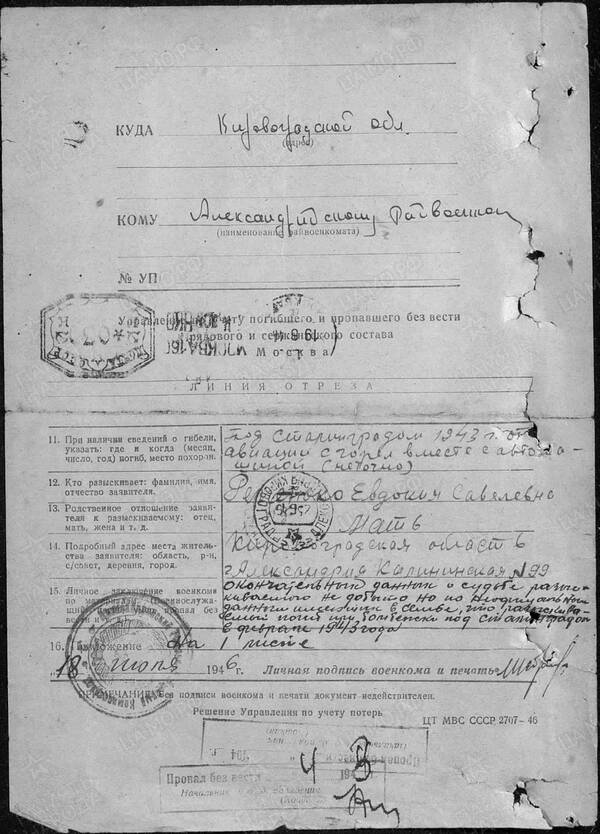 КУДА Кировоградской обл.
(город)
КОМУ Александрийскому Райвоенком
(наименование райвоенкомата)
№ УП
Управление по учету погибшего и пропавшего без вести
рядового и сержантского состава
Москва
ЛИНИЯ ОТРЕЗА
11. При наличии сведений о гибели,
указать: где и когда (месяц,
число, год) погиб, место похорон.
под Сталинградом 1943 г. от
авиации сгорел вместе с автома-
шиной (неточно)
12. Кто разыскивает: фамилия, имя,
отчество заявителя.
Евдокия Савелевна
13. Родственное отношение заяви-
теля к разыскиваемому: отец,
мать, жена и т. д.
Мать
14. Подробный адрес места житель-
ства заявителя: область, р-н,
с/совет, деревня, город.
Кировоградская область
г. Александрия Калининская № 99
15. Личное заключение военкома
по материалам (военнослужа-
щий погиб, пропал без
вести и т. д.)
окончательных данных о судьбе разыс-
киваемого не добыто но по
данным имеющимся в семье, что разыскива-
емый погиб при под Сталинградом
в феврале 1943 года
16. Приложение на 1 листе
„18" июля 1946 г. Личная подпись военкома и печать
ПРИМЕЧАНИЕ: Без подписи военкома и печати документ недействителен.
Решение Управления по учету потерь
ЦТ МВС СССР 2707-46
Пропал без вести
Начальник